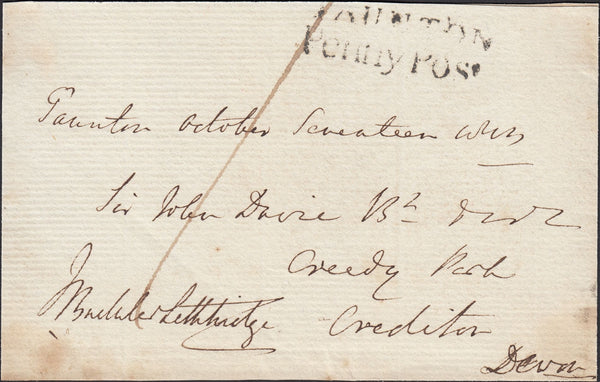 TAUNTON
Penny Post
Taunton October Seventeen
Sir John Davie Bt
Creedy Park
Crediton
Devon
Buckler Lethbridge